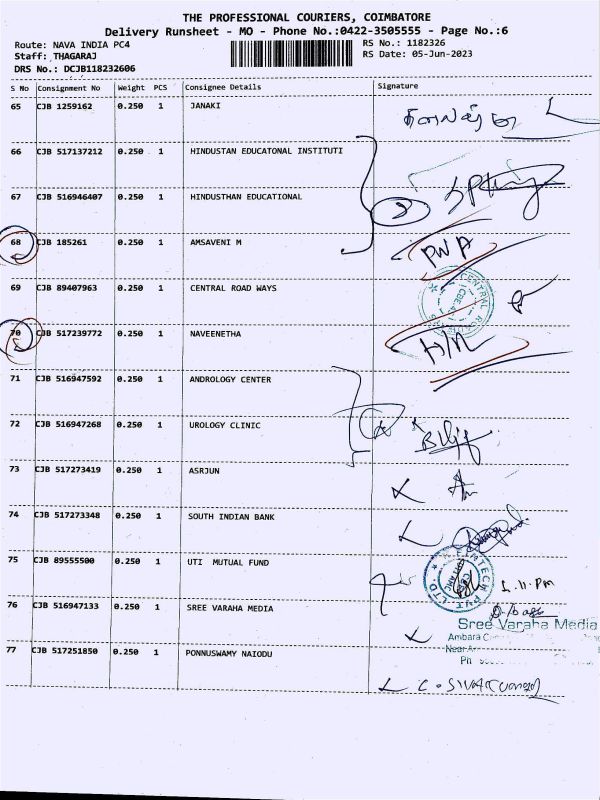 THE PROFESSIONAL COURIERS, COIMBATORE
Delivery Runsheet - MO - Phone No.:0422-3505555 - Page No.:6
Route: NAVA INDIA PC4 RS No.: 1182326
Staff: THAGARAJ RS Date: 05-Jun-2023
DRS No.: DCJB118232606
S No Consignment No Weight PCS Consignee Details Signature
65 CJB 1259162 0.250 1 JANAKI
66 CJB 517137212 0.250 1 HINDUSTAN EDUCATONAL INSTITUTI
67 CJB 516946407 0.250 1 HINDUSTHAN EDUCATIONAL
2
68 CJB 185261 0.250 1 AMSAVENI M
69 CJB 89407963 0.250 1 CENTRAL ROAD WAYS
CENTRAL
70 CJB 517239772 0.250 1 NAVEENETHA
71 CJB 516947592 0.250 1 ANDROLOGY CENTER
72 CJB 516947268 0.250 1 UROLOGY CLINIC
73 CJB 517273419 0.250 1 ASRJUN
74 CJB 517273348 0.250 1 SOUTH INDIAN BANK
75 CJB 89555500 0.250 1 UTI MUTUAL FUND
PVT LTD
1.11.PM
76 CJB 516947133 0.250 1 SREE VARAHA MEDIA
Sree Varaha Media
Ambara
Near
Ph
77 CJB 517251850 0.250 1 PONNUSWAMY NAIODU